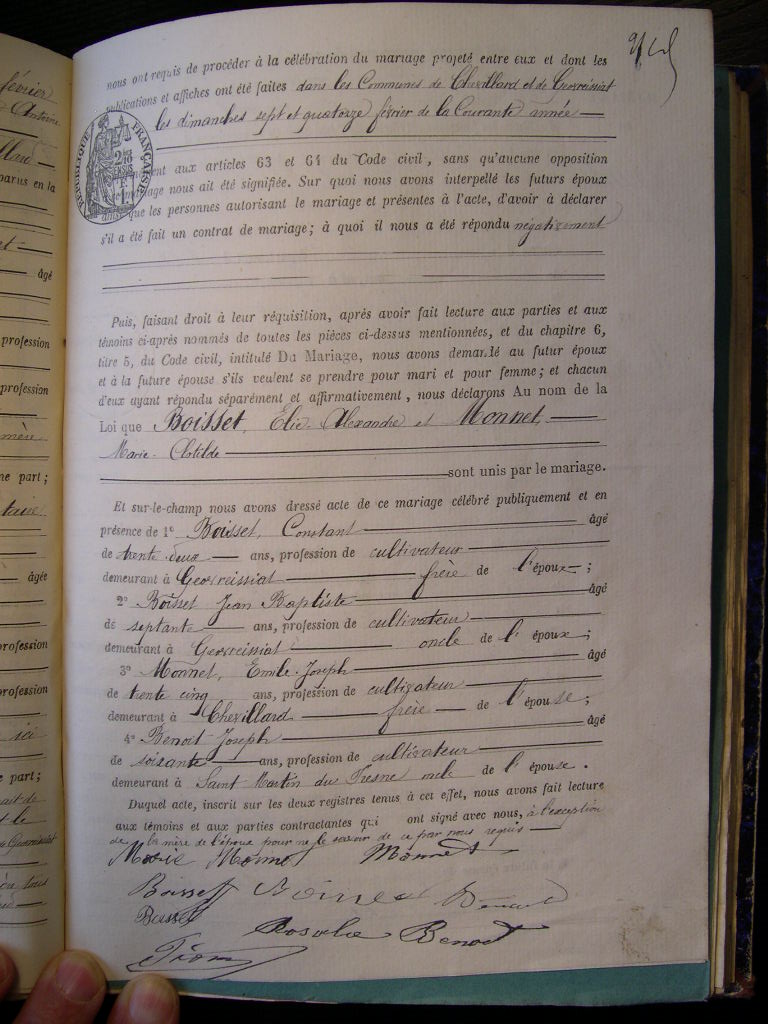 février
Antoine
nous ont requis de procéder à la célébration du mariage projeté entre eux et dont les
publications et affiches ont été faites dans les Communes de Chevillard et de Geovreissiat
les dimanches sept et quatorze février de la Courante année
RÉPUBLIQUE FRANÇAISE
aux articles 63 et 64 du Code civil, sans qu'aucune opposition
mariage nous ait été signifiée. Sur quoi nous avons interpellé les futurs époux
que les personnes autorisant le mariage et présentes à l'acte, d'avoir à déclarer
s'il a été fait un contrat de mariage; à quoi il nous a été répondu négativement
Puis, faisant droit à leur réquisition, après avoir fait lecture aux parties et aux
témoins ci-après nommés de toutes les pièces ci-dessus mentionnées, et du chapitre 6,
titre 5, du Code civil, intitulé Du Mariage, nous avons demandé au futur époux
et à la future épouse s'ils veulent se prendre pour mari et pour femme; et chacun
d'eux ayant répondu séparément et affirmativement, nous déclarons Au nom de la
Loi que Boisset, Élie Alexandre et Monnet,
Marie Clotilde
sont unis par le mariage.
Et sur-le-champ nous avons dressé acte de ce mariage célébré publiquement et en
présence de 1° Boisset, Constant âgé
de trente deux ans, profession de cultivateur
demeurant à Geovreissiat frère de l'époux;
2° Boisset Jean Baptiste âgé
de septante ans, profession de cultivateur
demeurant à Geovreissiat oncle de l'époux;
3° Monnet, Emile Joseph âgé
de trente cinq ans, profession de cultivateur
demeurant à Chevillard frère de l'épouse;
4° Benoit Joseph âgé
de soisante ans, profession de cultivateur
demeurant à Saint Martin du Fresne oncle de l'épouse.
Duquel acte, inscrit sur les deux registres tenus à cet effet, nous avons fait lecture
aux témoins et aux parties contractantes qui ont signé avec nous, à l'exception
de la mère de l'époux pour ne le savoir de ce par nous requis
Marie Monnet Monnet
Boisset Monnet Benoit
Boisset Rosalie Benoit